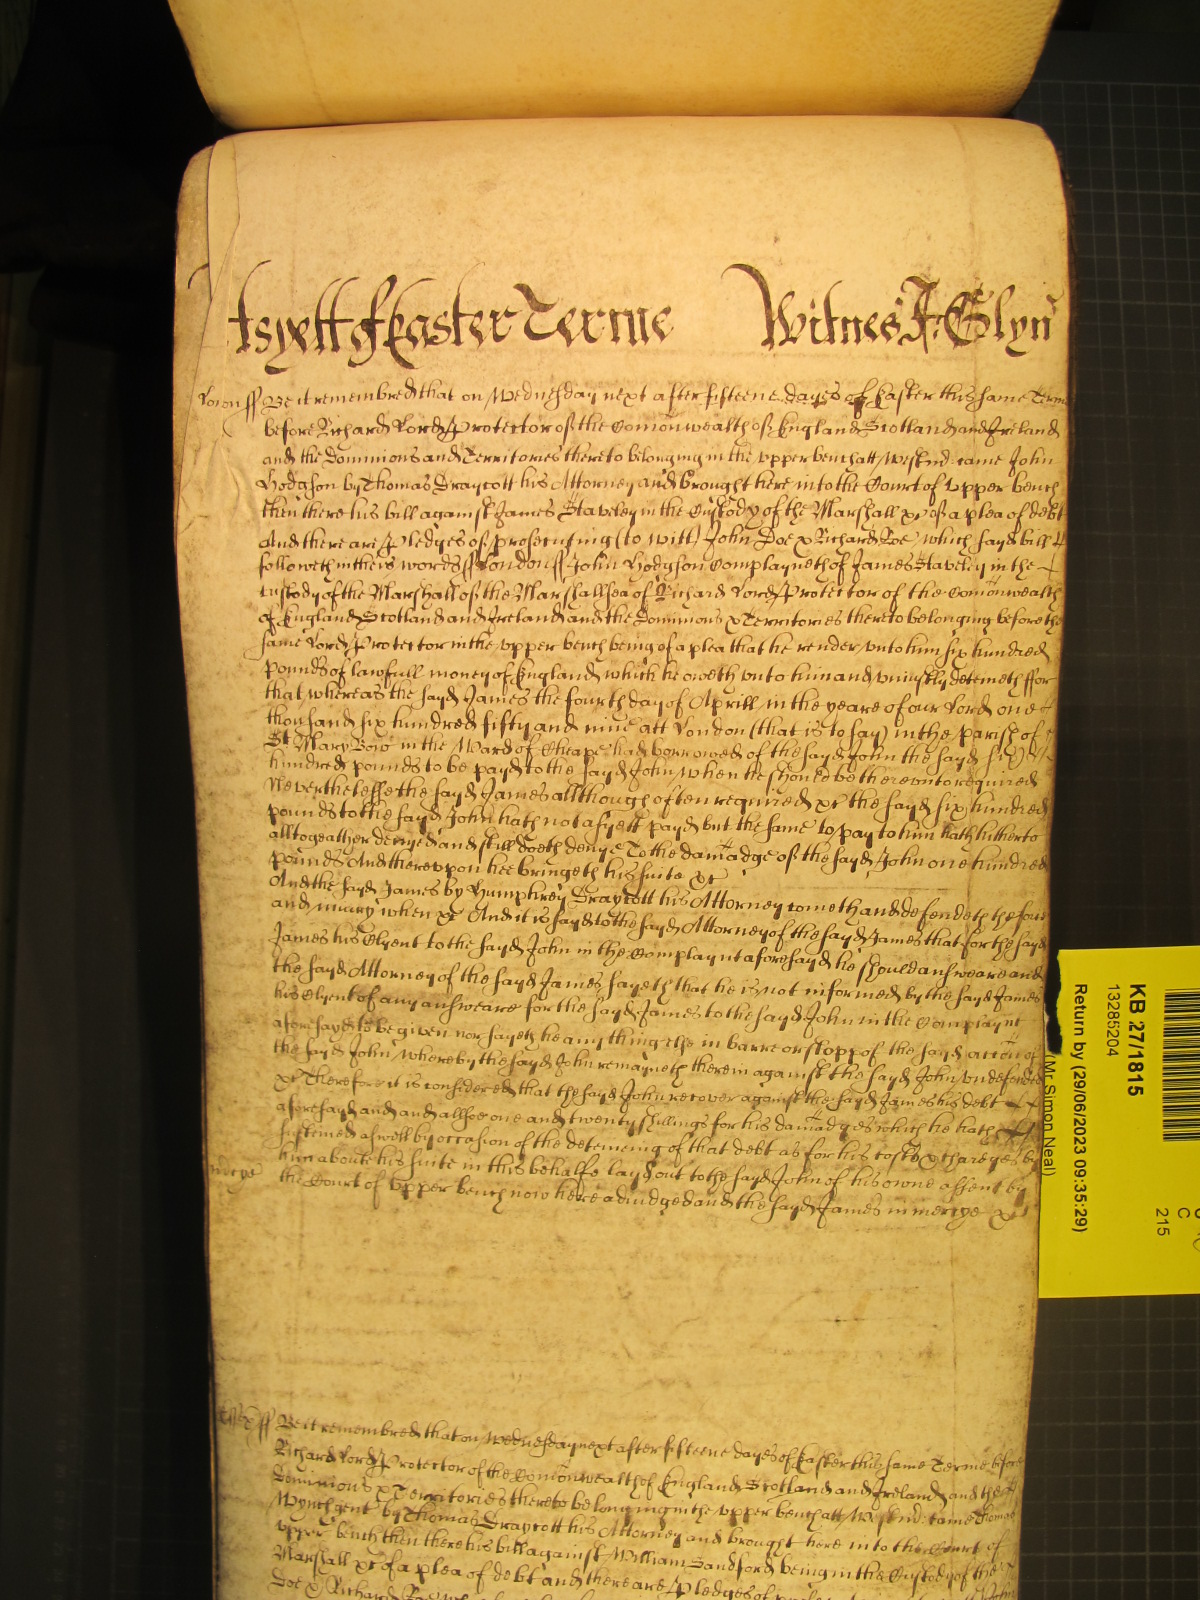 As yett of Easter Terme Witnes J: Glyn
London ss Be it remembred that on Wednesday next after fifteene dayes of Easter this same Terme
before Richard Lord Protector of the Comonwealth of England Scotland and Ireland
and the Dominions and Territories thereto belonging in the vpper bench att Westmr: came John
Hodgson by Thomas Draycott his Attorney and brought here into the Court of vpper bench
then there his bill against James Staveley in the Custody of the Marshall &c of a plea of debt
And there are Pledges of prosecuting (to witt) John Doe & Richard Roe which sayd bill
followeth in theis words ss London ss John Hodgson Complayneth of James Staveley in the
custody of the Marshall of the Marshallsea of Richard Lord Protector of the Comonwealth
of England Scotland and Ireland and the Dominions & Territories thereto belonging before the
same Lord Protector in the vpper bench being of a plea that he render vnto him six hundred
pounds of lawfull money of England which he oweth vnto him and vniustly deteineth ffor
that whereas the sayd James the fourth day of Aprill in the yeare of our Lord one
thousand six hundred fifty and nine att London (that is to say) in the parish of
St Mary Bow in the Ward of Cheape had borrowed of the sayd John the sayd six
hundred pounds to be payd to the sayd John when he should be therevnto required
Neverthelesse the sayd James allthough often required &c the sayd six hundred
pounds to the sayd John hath not as yett payd but the same to pay to him hath hitherto
alltogeather denyed and still doeth denye To the damadge of the sayd John one hundred
pounds And therevpon hee bringeth his suite &c
And the sayd James by Humphrey Draycott his Attorney cometh and defendeth the force
and iniury when &c And it is sayd to the sayd Attorney of the sayd James that for the sayd
James his Clyent to the sayd John in the Complaynt aforesayd he should answeare and
the sayd Attorney of the sayd James sayeth that he is not informed by the sayd James
his Clyent of any answeare for the sayd James to the sayd John in the Complaynt
aforesayd to be given nor sayeth he any thing else in barre or stopp of the sayd accon of
the sayd John whereby the sayd John remayneth therein against the sayd John vndefended
&c Therefore it is considered that the sayd John recover against the sayd James his debt
aforesayd and and allsoe one and twenty shillings for his damadges which he hath
susteined aswell by occasion of the deteineing of that debt as for his costs & charges by
him about his suite in this behalfe layd out to the sayd John of his owne assent by
mercye the Court of vpper bench now here adiudged and the sayd James in mercye &c
Essex ss Be it remembred that on Wednesday next after fifteene dayes of Easter this same Terme before
Richard Lord Protector of the Comonwealth of England Scotland and Ireland and the
Dominions & Territories thereto belonging in the vpper bench att Westmr: came Thomas
Wynch gent by Thomas Draycott his Attorney and brought here into the Court of
vpper bench then there his bill against William Sandford being in the Custody of the
Marshall &c of a plea of debt and there are Pledges of
Doe & Richard Roe
KB 27/1815
13285204
Return by (29/06/2023 09:35:29)
(Mr Simon Neal)
C
215